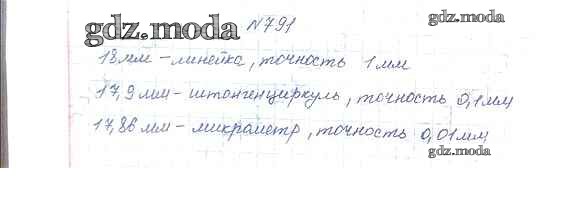 gdz.moda
gdz.moda N791
18мм - линейка, точность 1мм
17,9 мм - штангенциркуль, точность 0,1мм
17,86 мм - микрометр, точность 0,01мм
gdz.moda